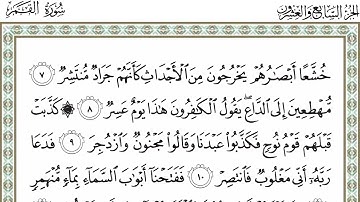 سورة القمر
الجزء السابع والعشرون
خُشَّعًا أَبْصَٰرُهُمْ يَخْرُجُونَ مِنَ ٱلْأَجْدَاثِ كَأَنَّهُمْ جَرَادٌ مُّنتَشِرٌ ٧
مُّهْطِعِينَ إِلَى ٱلدَّاعِ ۖ يَقُولُ ٱلْكَٰفِرُونَ هَٰذَا يَوْمٌ عَسِرٌ ٨ ۞ كَذَّبَتْ
قَبْلَهُمْ قَوْمُ نُوحٍ فَكَذَّبُوا۟ عَبْدَنَا وَقَالُوا۟ مَجْنُونٌ وَٱزْدُجِرَ ٩ فَدَعَا
رَبَّهُۥٓ أَنِّى مَغْلُوبٌ فَٱنتَصِرْ ١٠ فَفَتَحْنَآ أَبْوَٰبَ ٱلسَّمَآءِ بِمَآءٍ مُّنْهَمِرٍ